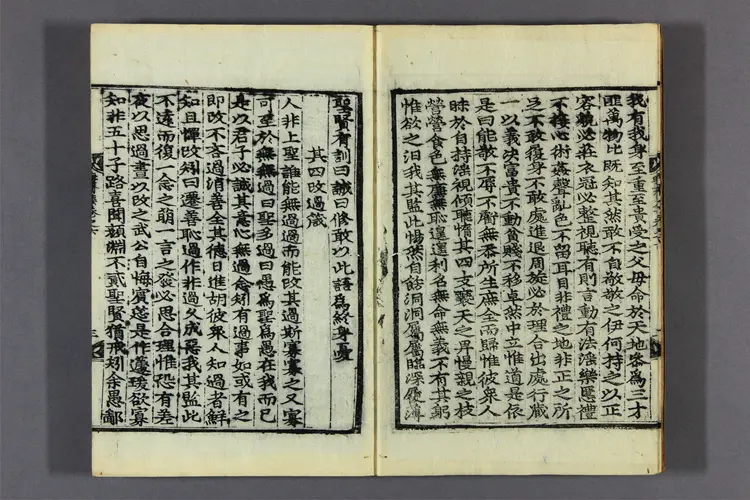 我有我身至重至貴受之父母命於天地參爲三才
匪萬物比既知其然敢不自敬敬之伊何持之以正
容貌必莊衣冠必整視聽有則言動有法淫樂慝禮
不接心術姦聲亂色不留耳目非禮之地非正之所
足不敢履身不敢處進退周旋必於理合出處行藏
一以義決富貴不動貧賤不移卓然中立惟道是依
是曰能敬不辱不虧無忝所生庶全而歸惟彼衆人
昧於自持淫視傾聽惰其四支褻天之
慢親之枝
營營食色無廉無恥遑遑利名無命無義不有其躬
惟欲之汨我其監此惕然自
洞洞屬屬臨深履薄
聖賢有訓曰誠曰修敢以此語爲終身憂
其四改過箴
人非上聖誰能無過過而能改其過斯寡寡之又寡
可至於無無過曰聖多過曰愚爲聖爲愚在我而已
是以君子必誠其意心無過念矧有過事如或有之
即改不吝過消善全其德日進胡彼衆人知過者鮮
知且憚改矧曰遷善恥過作非過久成惡我其監此
不遠而復一念之萌一言之發必思合理惟恐有差
夜以思過晝以改之武公自悔賓筵是作蘧瑗欲寡
知非五十子路喜聞顏淵不貳聖賢猶戒矧余愚鄙